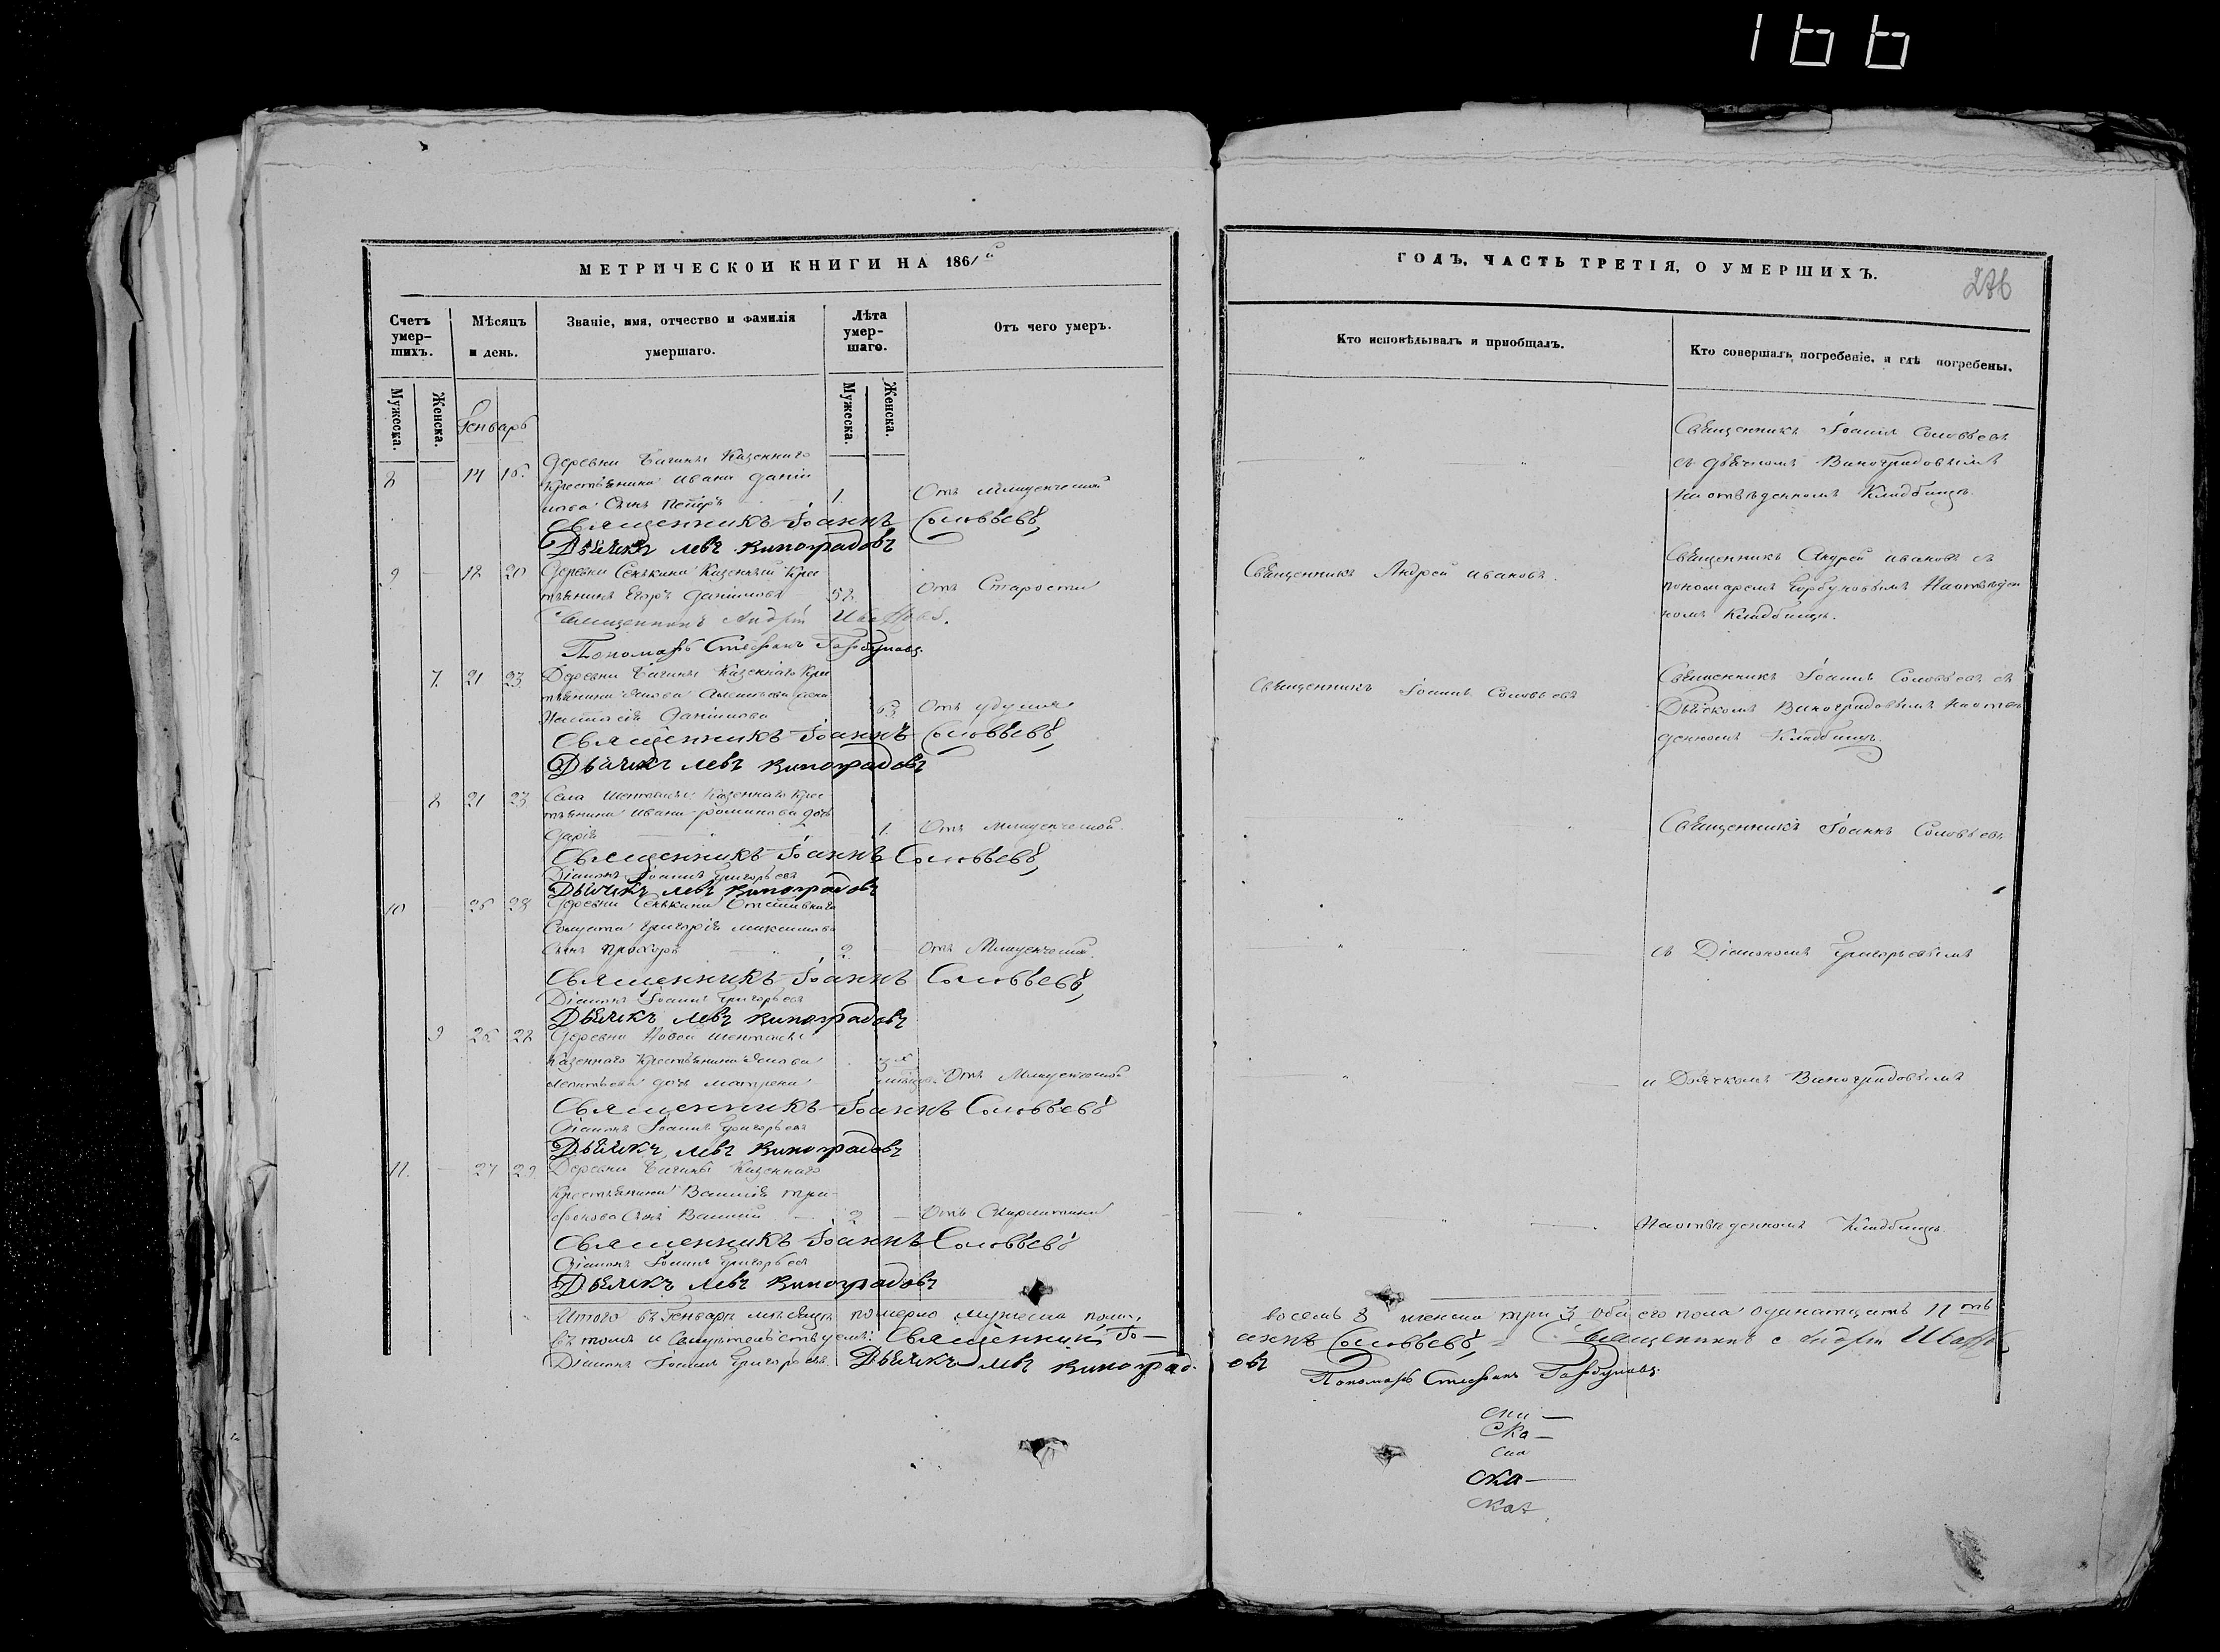 166
МЕТРИЧЕСКОЙ КНИГИ НА 1861 й
ГОДЪ, ЧАСТЬ ТРЕТІЯ, О УМЕРШИХЪ.
Счетъ умершихъ.
Мѣсяцъ и день.
Званіе, имя, отчество и фамилія умершаго.
Лѣта умершаго.
Отъ чего умеръ.
Кто исповѣдывалъ и пріобщалъ.
Кто совершалъ погребеніе, и гдѣ погребены.
Мужеска.
Женска.
Генварь
Мужеска.
Женска.
8 14 16. Деревни Казеннаго
крестьянина Ивана Дани
лова Сынъ Петръ 1. Отъ Младенческой
Священникъ Іоаннъ Соловьевъ
Священникъ Іоаннъ Соловьевъ,
Дьячикъ Левъ Виноградовъ
съ дьячкомъ Виноградовымъ
на отведенномъ Кладбищѣ.
9 18 20 Деревни Сенькиной Казенный Крес
тьянинъ Егоръ Даниловъ 58 Отъ Старости
Священникъ Андрей Ивановъ.
Священникъ Андрей Ивановъ съ
пономаремъ Горбуновымъ На отведен
номъ Кладбищѣ.
Священникъ Андрей Ивановъ.
Пономарь Стефанъ Горбуновъ.
7. 21 23 Деревни Казеннаго Крес
тьянина жена
Настасія Данилова 63 Отъ удушья
Священникъ Іоаннъ Соловьевъ
Священникъ Іоаннъ Соловьевъ съ
Дьячкомъ Виноградовымъ на отве
денномъ Кладбищѣ.
Священникъ Іоаннъ Соловьевъ,
Дьячикъ Левъ Виноградовъ
8 21 23 Села Шенталы Казеннаго Крес
тьянина Ивана Романова дочь
Дарія 1. Отъ Младенческой.
Священникъ Іоаннъ Соловьевъ
Священникъ Іоаннъ Соловьевъ,
Діаконъ Іоаннъ Григорьевъ
Дьячикъ Левъ Виноградовъ
10 26 28 Деревни Сенькиной Отставнаго
Солдата Григорія Максимова
Сынъ Прохоръ 2. Отъ Младенческой.
съ Діакономъ Григорьевымъ
Священникъ Іоаннъ Соловьевъ,
Діаконъ Іоаннъ Григорьевъ
Дьячикъ Левъ Виноградовъ
9 26 28 Деревни Новой Шенталы
Казеннаго Крестьянина
Леонтьева дочь Матрена 3 х Отъ Младенческой
и Дьячкомъ Виноградовымъ
Священникъ Іоаннъ Соловьевъ
Діаконъ Іоаннъ Григорьевъ
Дьячикъ Левъ Виноградовъ
11. 27 29. Деревни Казеннаго
Крестьянина Василія Три
фонова Сынъ Василій 2
На отведенномъ Кладбищѣ
Священникъ Іоаннъ Соловьевъ
Діаконъ Іоаннъ Григорьевъ
Дьячикъ Левъ Виноградовъ
Итого въ Генварѣ мѣсяцѣ померло мужеска пола, восемь 8 женска три 3 обоего пола одинатцать 11 ть
въ томъ и Свидѣтельствуемъ: Священникъ Іоаннъ Соловьевъ, Священникъ Андрей Ивановъ
Діаконъ Іоаннъ Григорьевъ Дьячикъ Левъ Виноградовъ
Пономарь Стефанъ Горбуновъ.
Ска
Ска